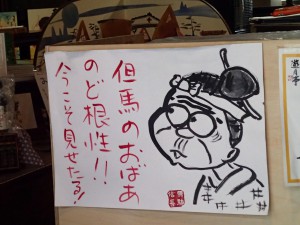 但馬のおばあ
のど根性!!
今こそ見せたる!